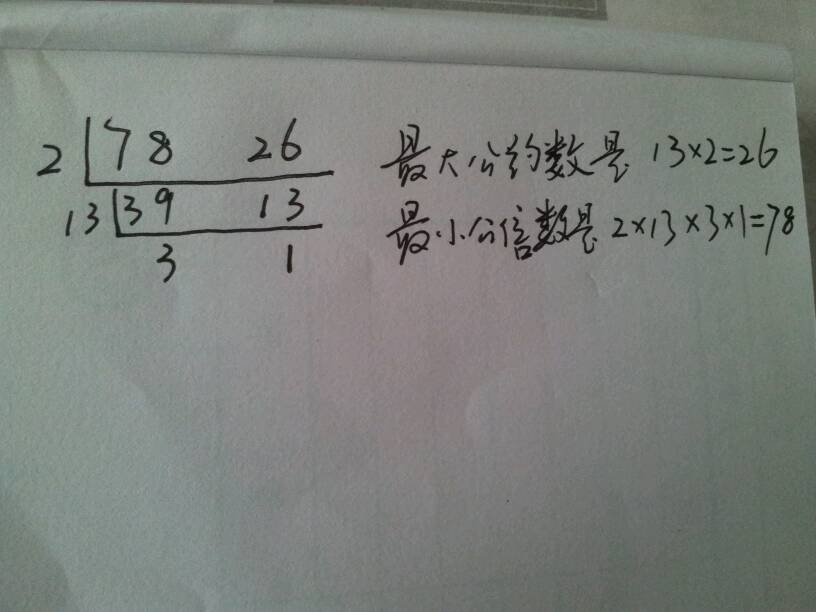 2 78 26 最大公约数是 13×2=26
13 39 13 最小公倍数是 2×13×3×1=78
3 1